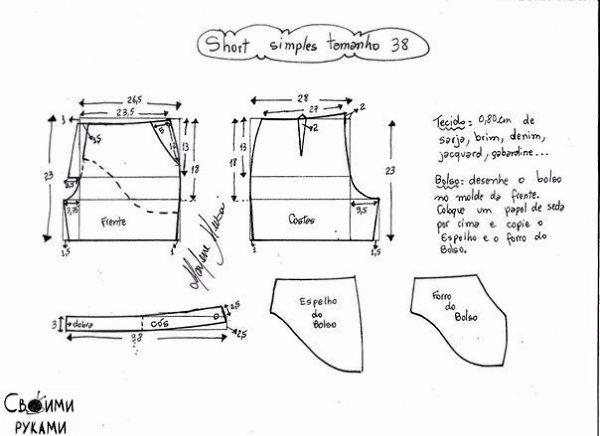 Short simples tamanho 38
26,5
23,5
1
8
1,5
13
13
18
23
3,75
Frente
1,5
1
28
27
2
2
13
18
23
9,5
Costas
1
1,5
Tecido: 0,80cm de
sarja, brim, denim,
jacquard, gabardine...
Bolso: desenhe o bolso
no molde da frente.
Coloque um papel de seda
por cima e copie o
Espelho e o forro do
Bolso.
3
dobra
CÓS
2,5
Espelho
do
Bolso
Forro
do
Bolso
Своими
руками